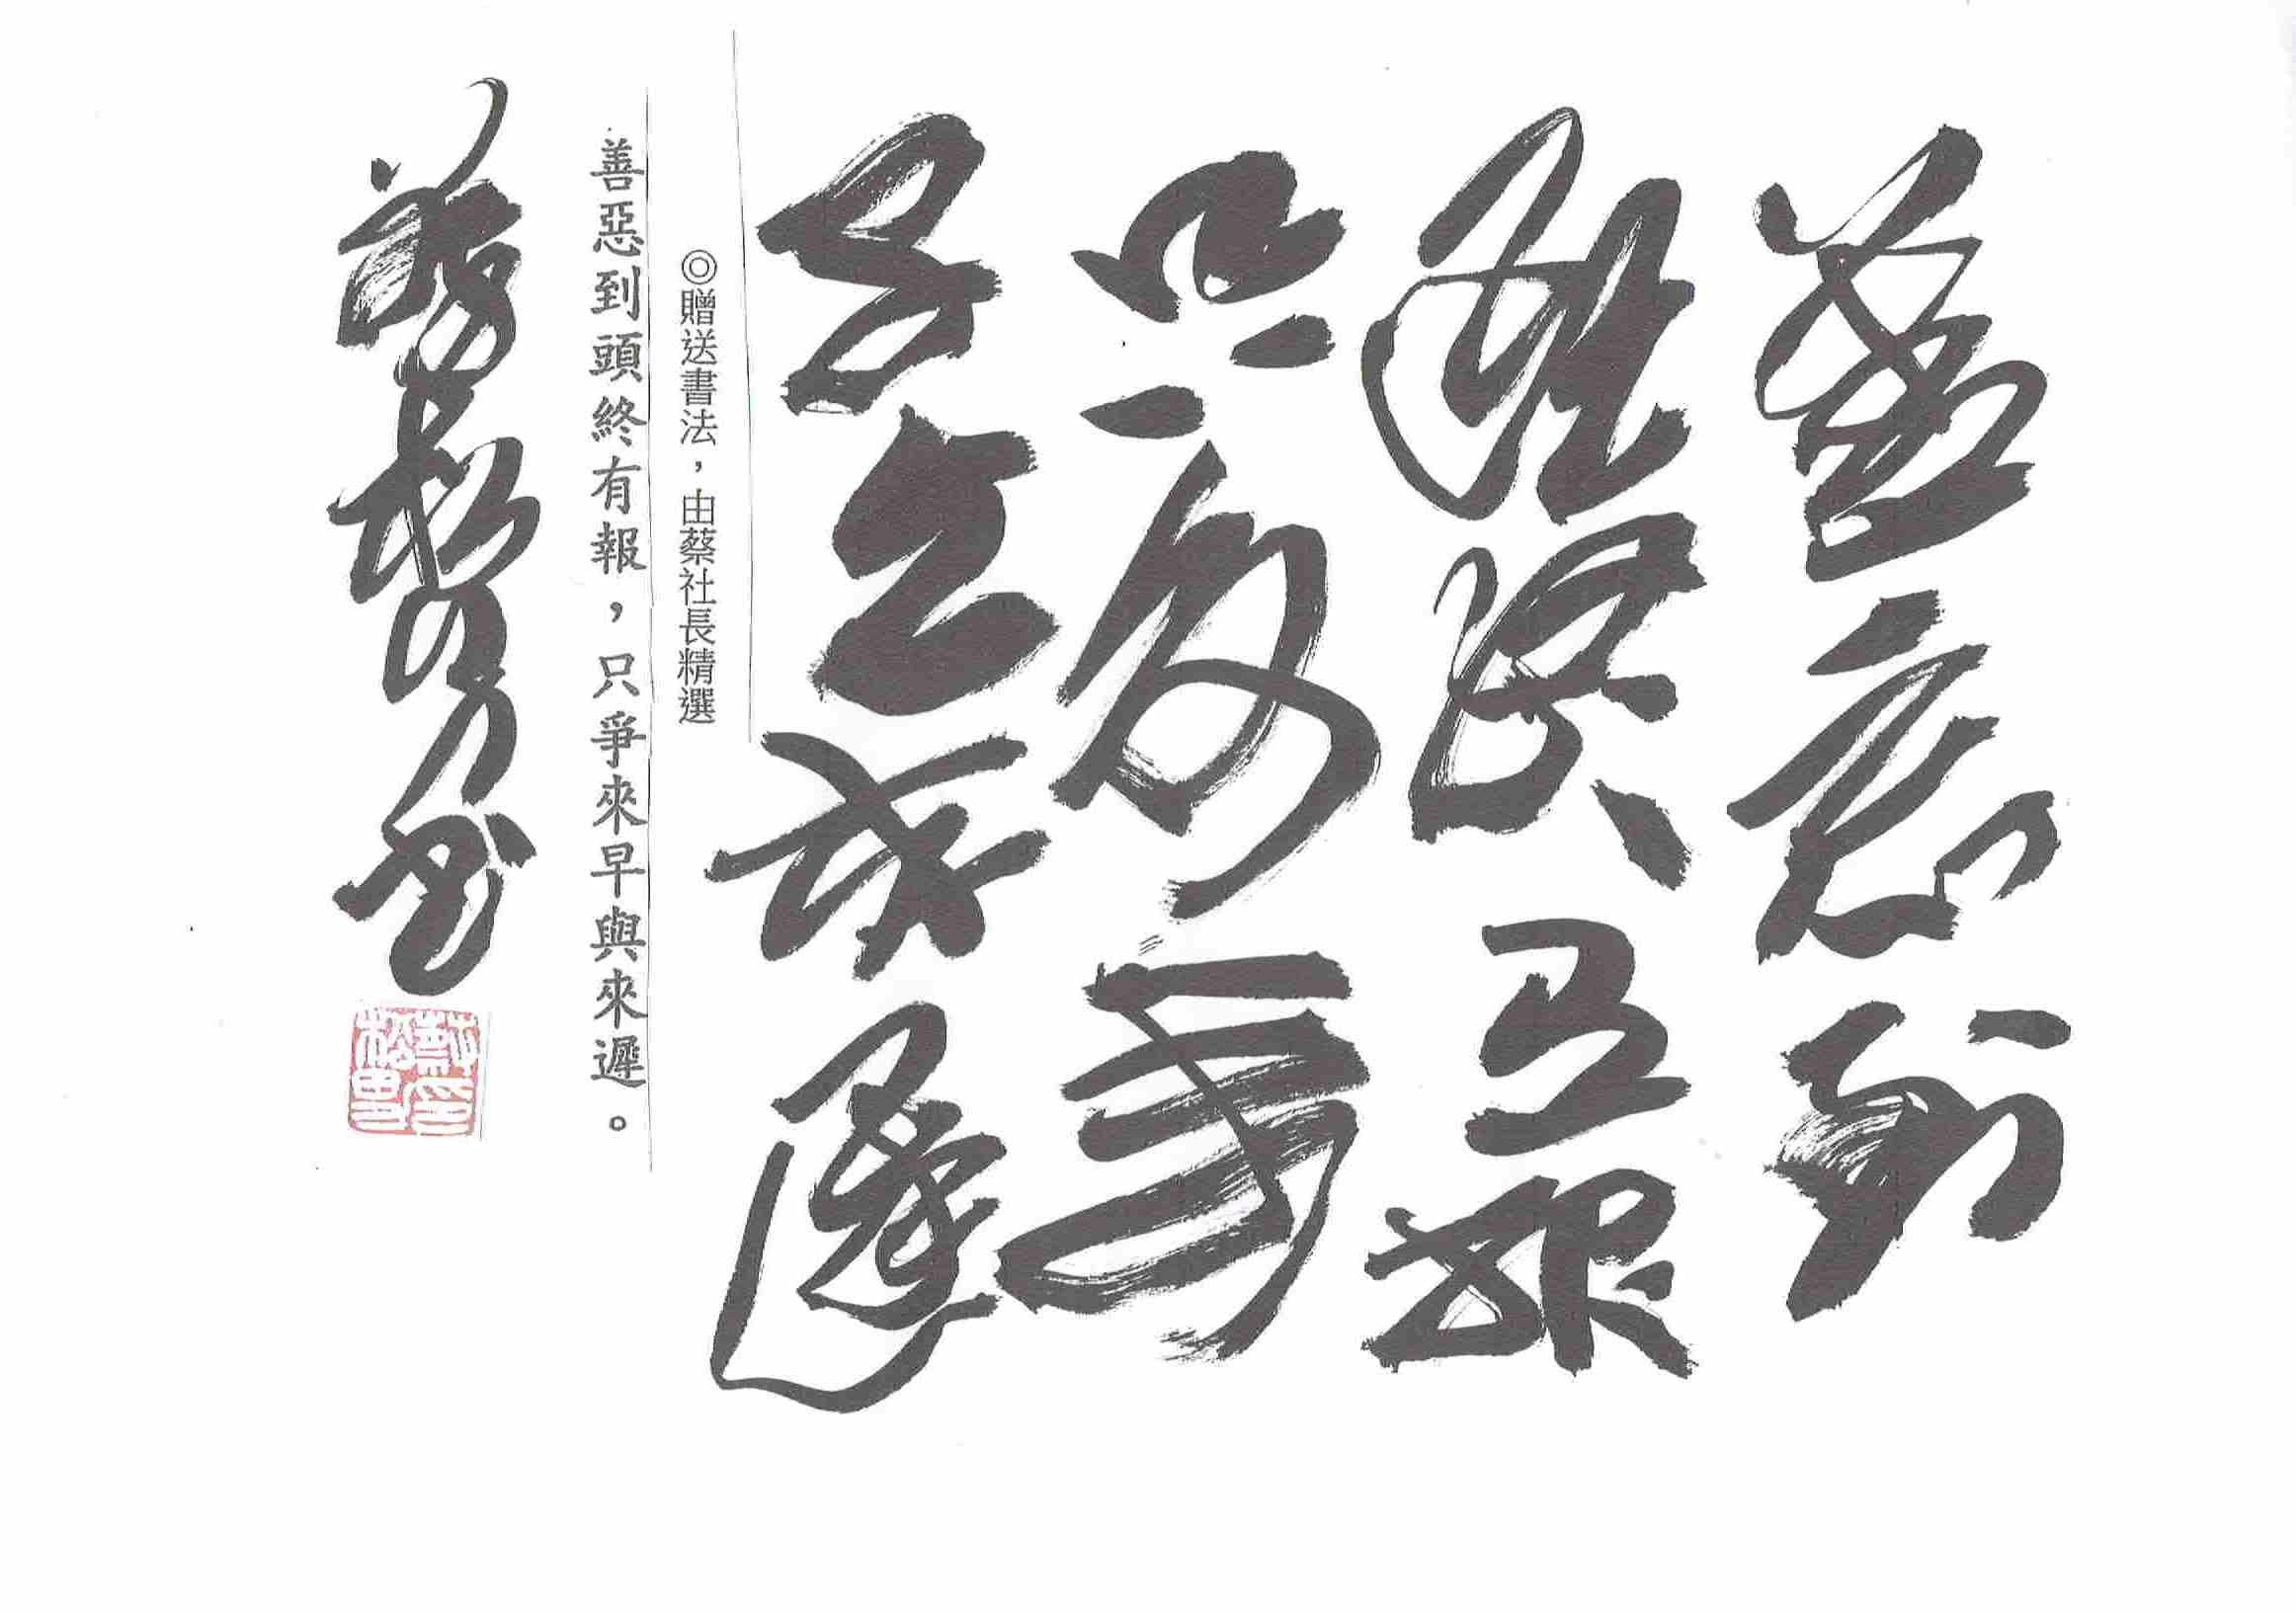 善惡到
頭終有報
只爭來
早與來遲
◎贈送書法，由蔡社長精選
善惡到頭終有報，只爭來早與來遲。
蔡松男書